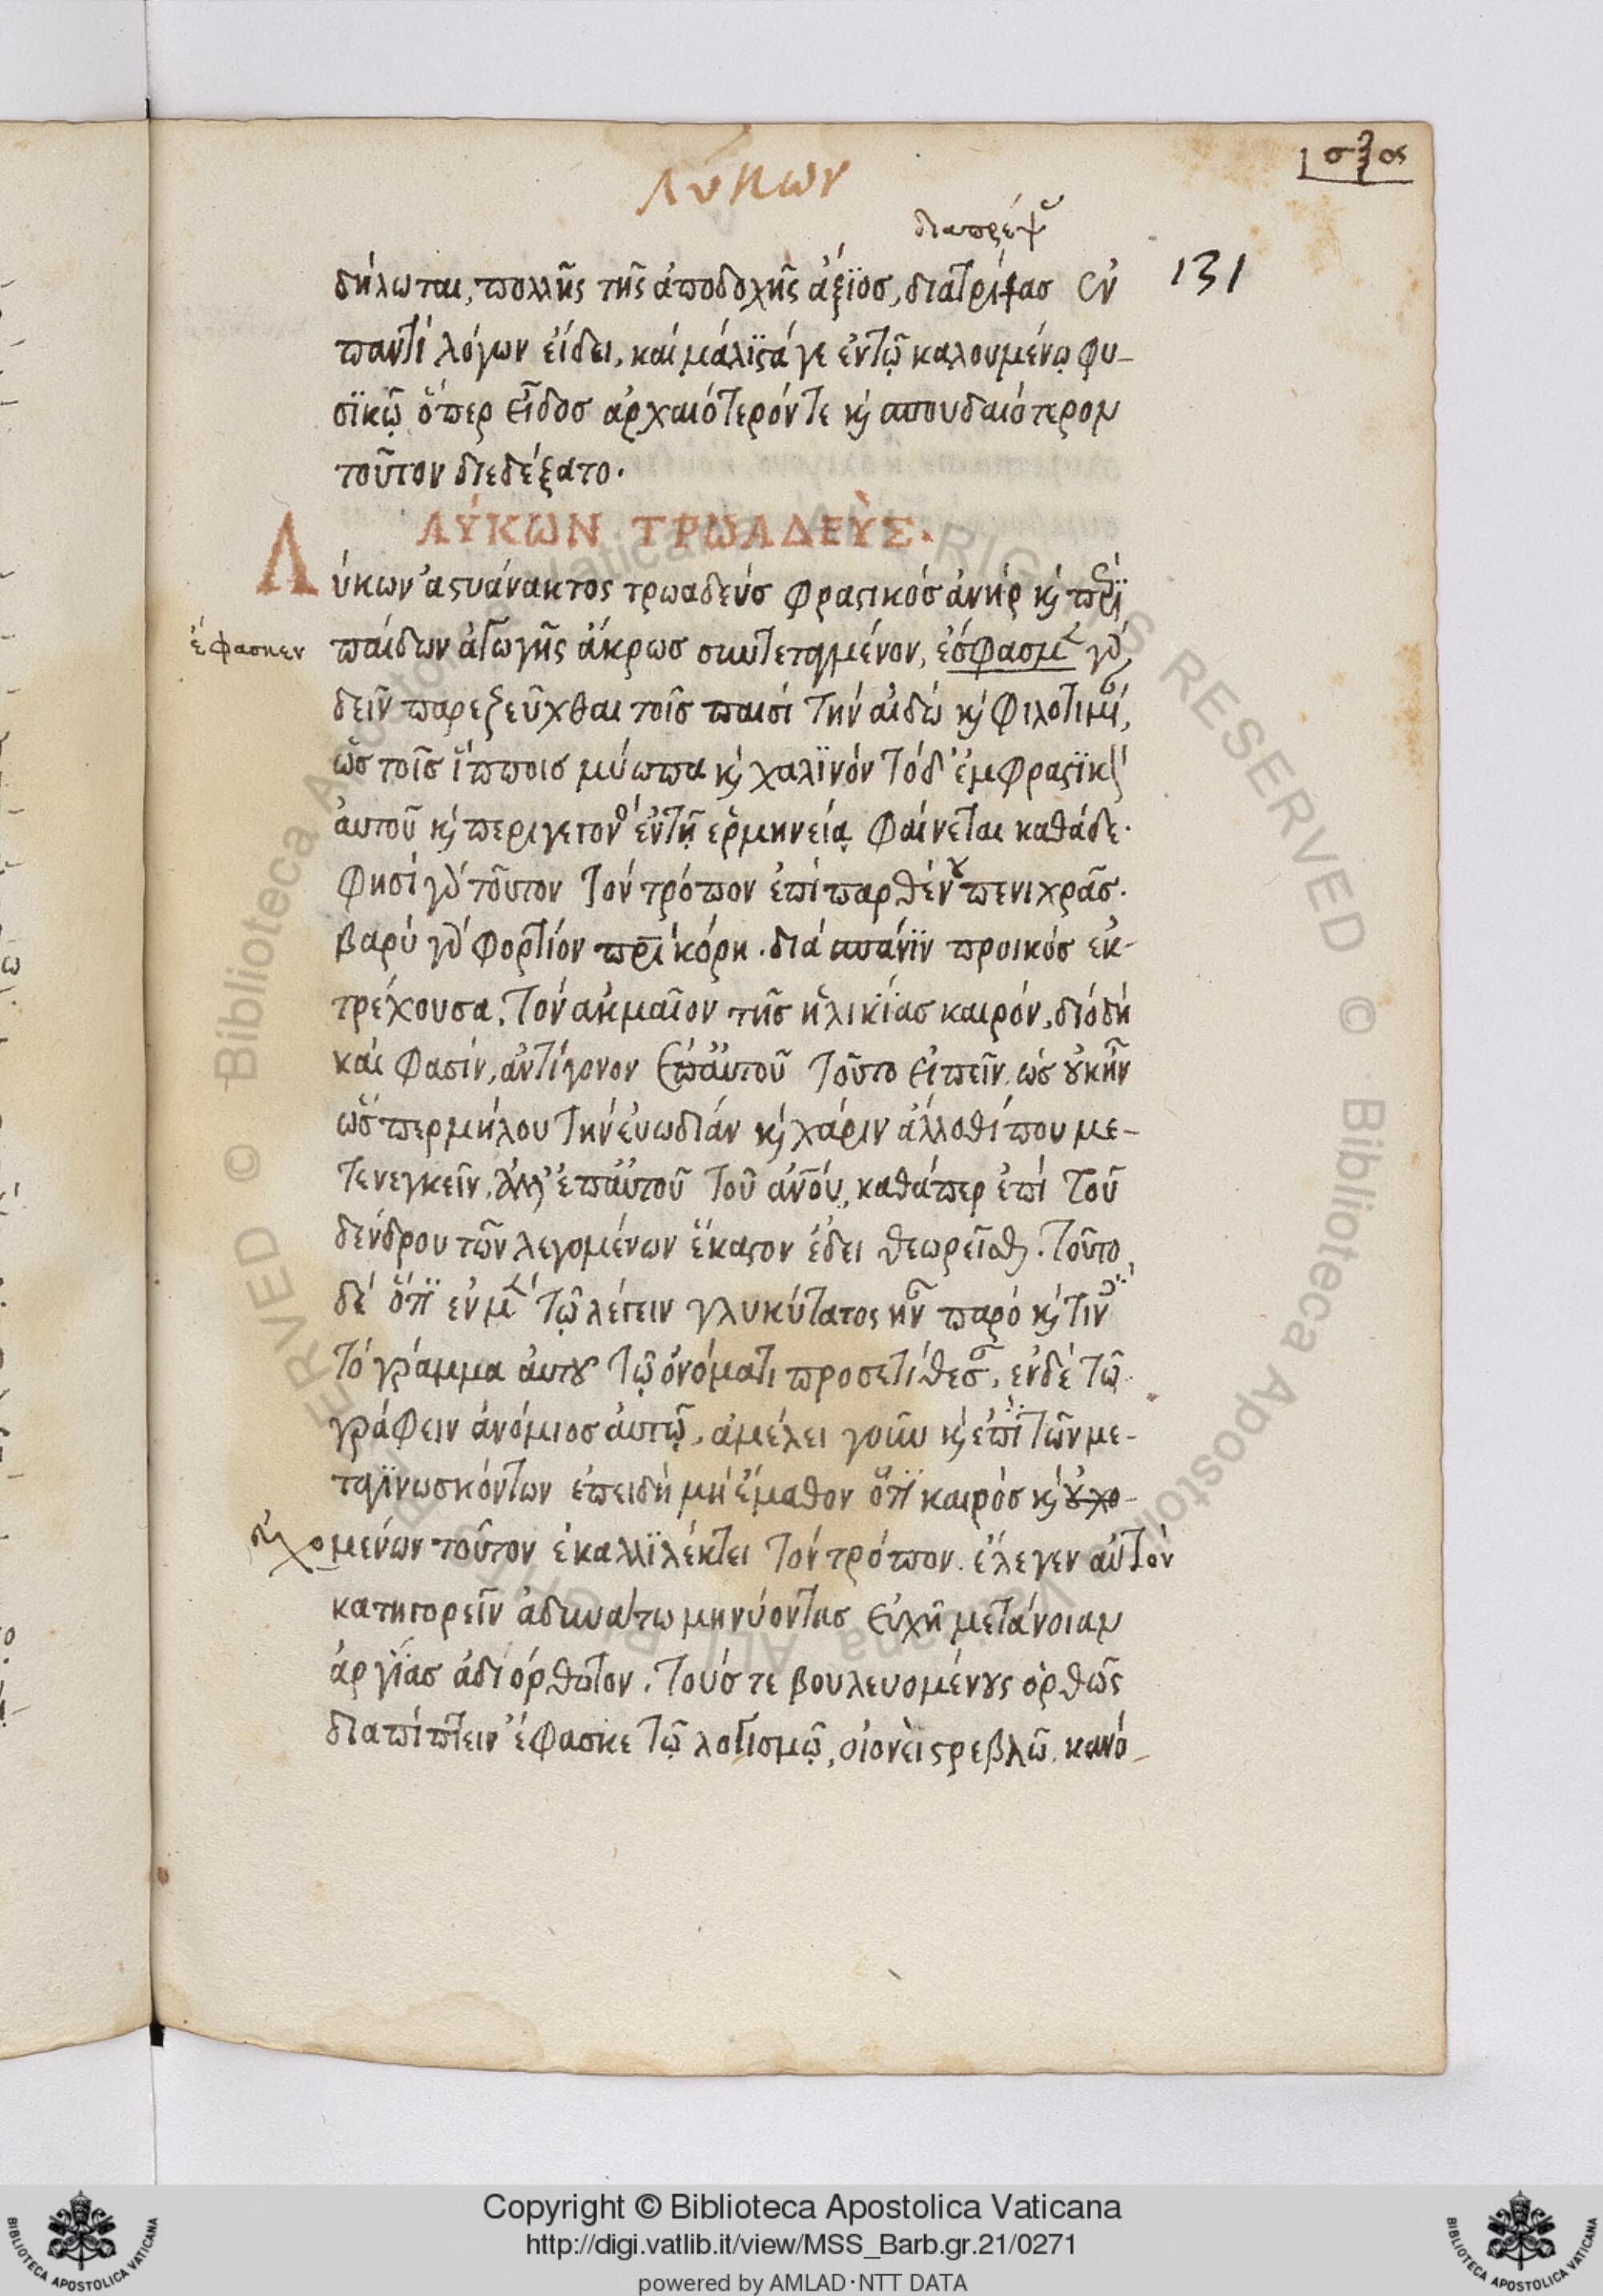 Λύκων
διαπρέψ
131
δήλωται, πολλῆς τῆς ἀποδοχῆς ἄξϊος, διατρίψας ἐν
παντὶ λόγων εἴδει, καὶ μάλϊστά γε ἐν τῷ καλουμένῳ φυ-
σϊκῷ ὅπερ εἶδος ἀρχαιότερόν τε κ̀ σπουδαιότερον
τοῦτον διεδέξατο.
ΛΎΚΩΝ ΤΡΩΑΔΕῪΣ.
Λύκων ἀστυάνακτος τρωαδεύς φραστικός ἀνήρ κ̀ περὶ
ἔφασκεν
παίδων ἀγωγῆς ἄκρως συντεταγμένον, γὰρ
δεῖν παρεζεῦχθαι τοῖς παισί τήν αἰδώ κ̀ φιλοτιμί,
ὡς τοῖς ἵπποις μύωπα κ̀ χαλϊνόν τό δ' ἐμφραστϊκ
ἀυτοῦ κ̀ περιγετον ἐν τῇ ἑρμηνείᾳ φαίνεται καθάδε.
φησί γὰρ τοῦτον τόν τρόπον ἐπί παρθένου πενιχρᾶς.
βαρύ γὰρ φορτίον πρι κόρη. διά σπάνϊν προικός ἐκ-
τρέχουσα, τόν ἀκμαῖον τῆς ἡλικϊας καιρόν, διό δή
καί φασίν, ἀντίγονον ἐπ' ἀυτοῦ τοῦτο εἰπεῖν. ὡς οὐκ ἦν
ὥσπερ μήλου τήν ἐυωδίαν κ̀ χάριν ἀλλοθί που με-
τενεγκεῖν, ἀλλ' ἐπ' ἀυτοῦ τοῦ ἀν̅ού, καθάπερ ἐπί τοῦ
δένδρου τῶν λεγομένων ἕκαστον ἔδει θεωρεῖσθ. τοῦτο
δέ ὅτϊ ἐν μ τῷ λέγειν γλυκύτατος ἦν παρό κ̀ τιν
τό γράμμα ἀυτοῦ τῷ ὀνόματι προσετίθεσ, ἐν δέ τῷ
γράφειν ἀνόμιος ἀυτῷ, ἀμέλει γοῦν κ̀ ἐπϊ τῶν με-
ταγϊνωσκόντων ἐπειδή μή ἔμαθον ὅτϊ καιρός κ̀ οὐχο-
μένων τοῦτον ἐκαλλϊλέκτει τόν τρόπον. ἔλεγεν ἀυτόν
κατηγορεῖν ἀδυνάτω μηνύοντας εὐχῆ μετάνοιαν
ἀργϊας ἀδιόρθωτον. τούς τε βουλευομένους ὀρθῶς
διαπίπτειν ἔφασκε τῷ λογισμῷ, οἱονεὶ στρεβλῶ. κανό-
Copyright © Biblioteca Apostolica Vaticana
http://digi.vatlib.it/view/MSS_Barb.gr.21/0271
powered by AMLAD·NTT DATA
BIBLIOTECA APOSTOLICA VATICANA
BIBLIOTECA APOSTOLICA VATICANA